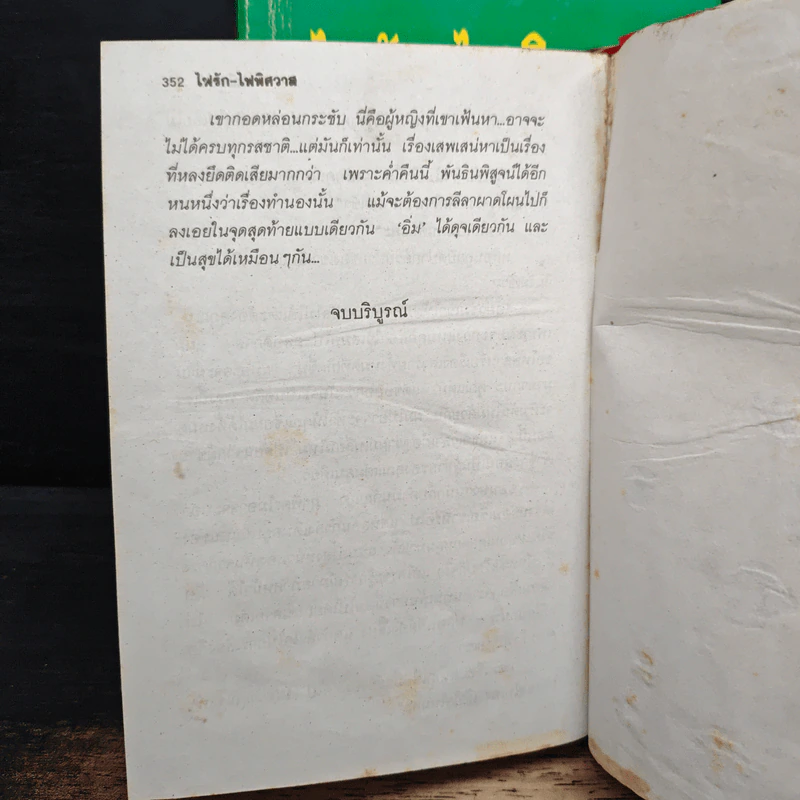 352 ไฟรัก-ไฟพิศวาส
เขากอดหล่อนกระชับ นี่คือผู้หญิงที่เขาเฟ้นหา...อาจจะ
ไม่ได้ครบทุกรสชาติ...แต่มันก็เท่านั้น เรื่องเสพเสน่หาเป็นเรื่อง
ที่หลงยึดติดเสียมากกว่า เพราะค่ำคืนนี้ พันธินพิสูจน์ได้อีก
หนหนึ่งว่าเรื่องทำนองนั้น แม้จะต้องการลีลาผาดโผนไปก็
ลงเอยในจุดสุดท้ายแบบเดียวกัน ‘อิ่ม’ ได้ดุจเดียวกัน และ
เป็นสุขได้เหมือนๆกัน...
จบบริบูรณ์